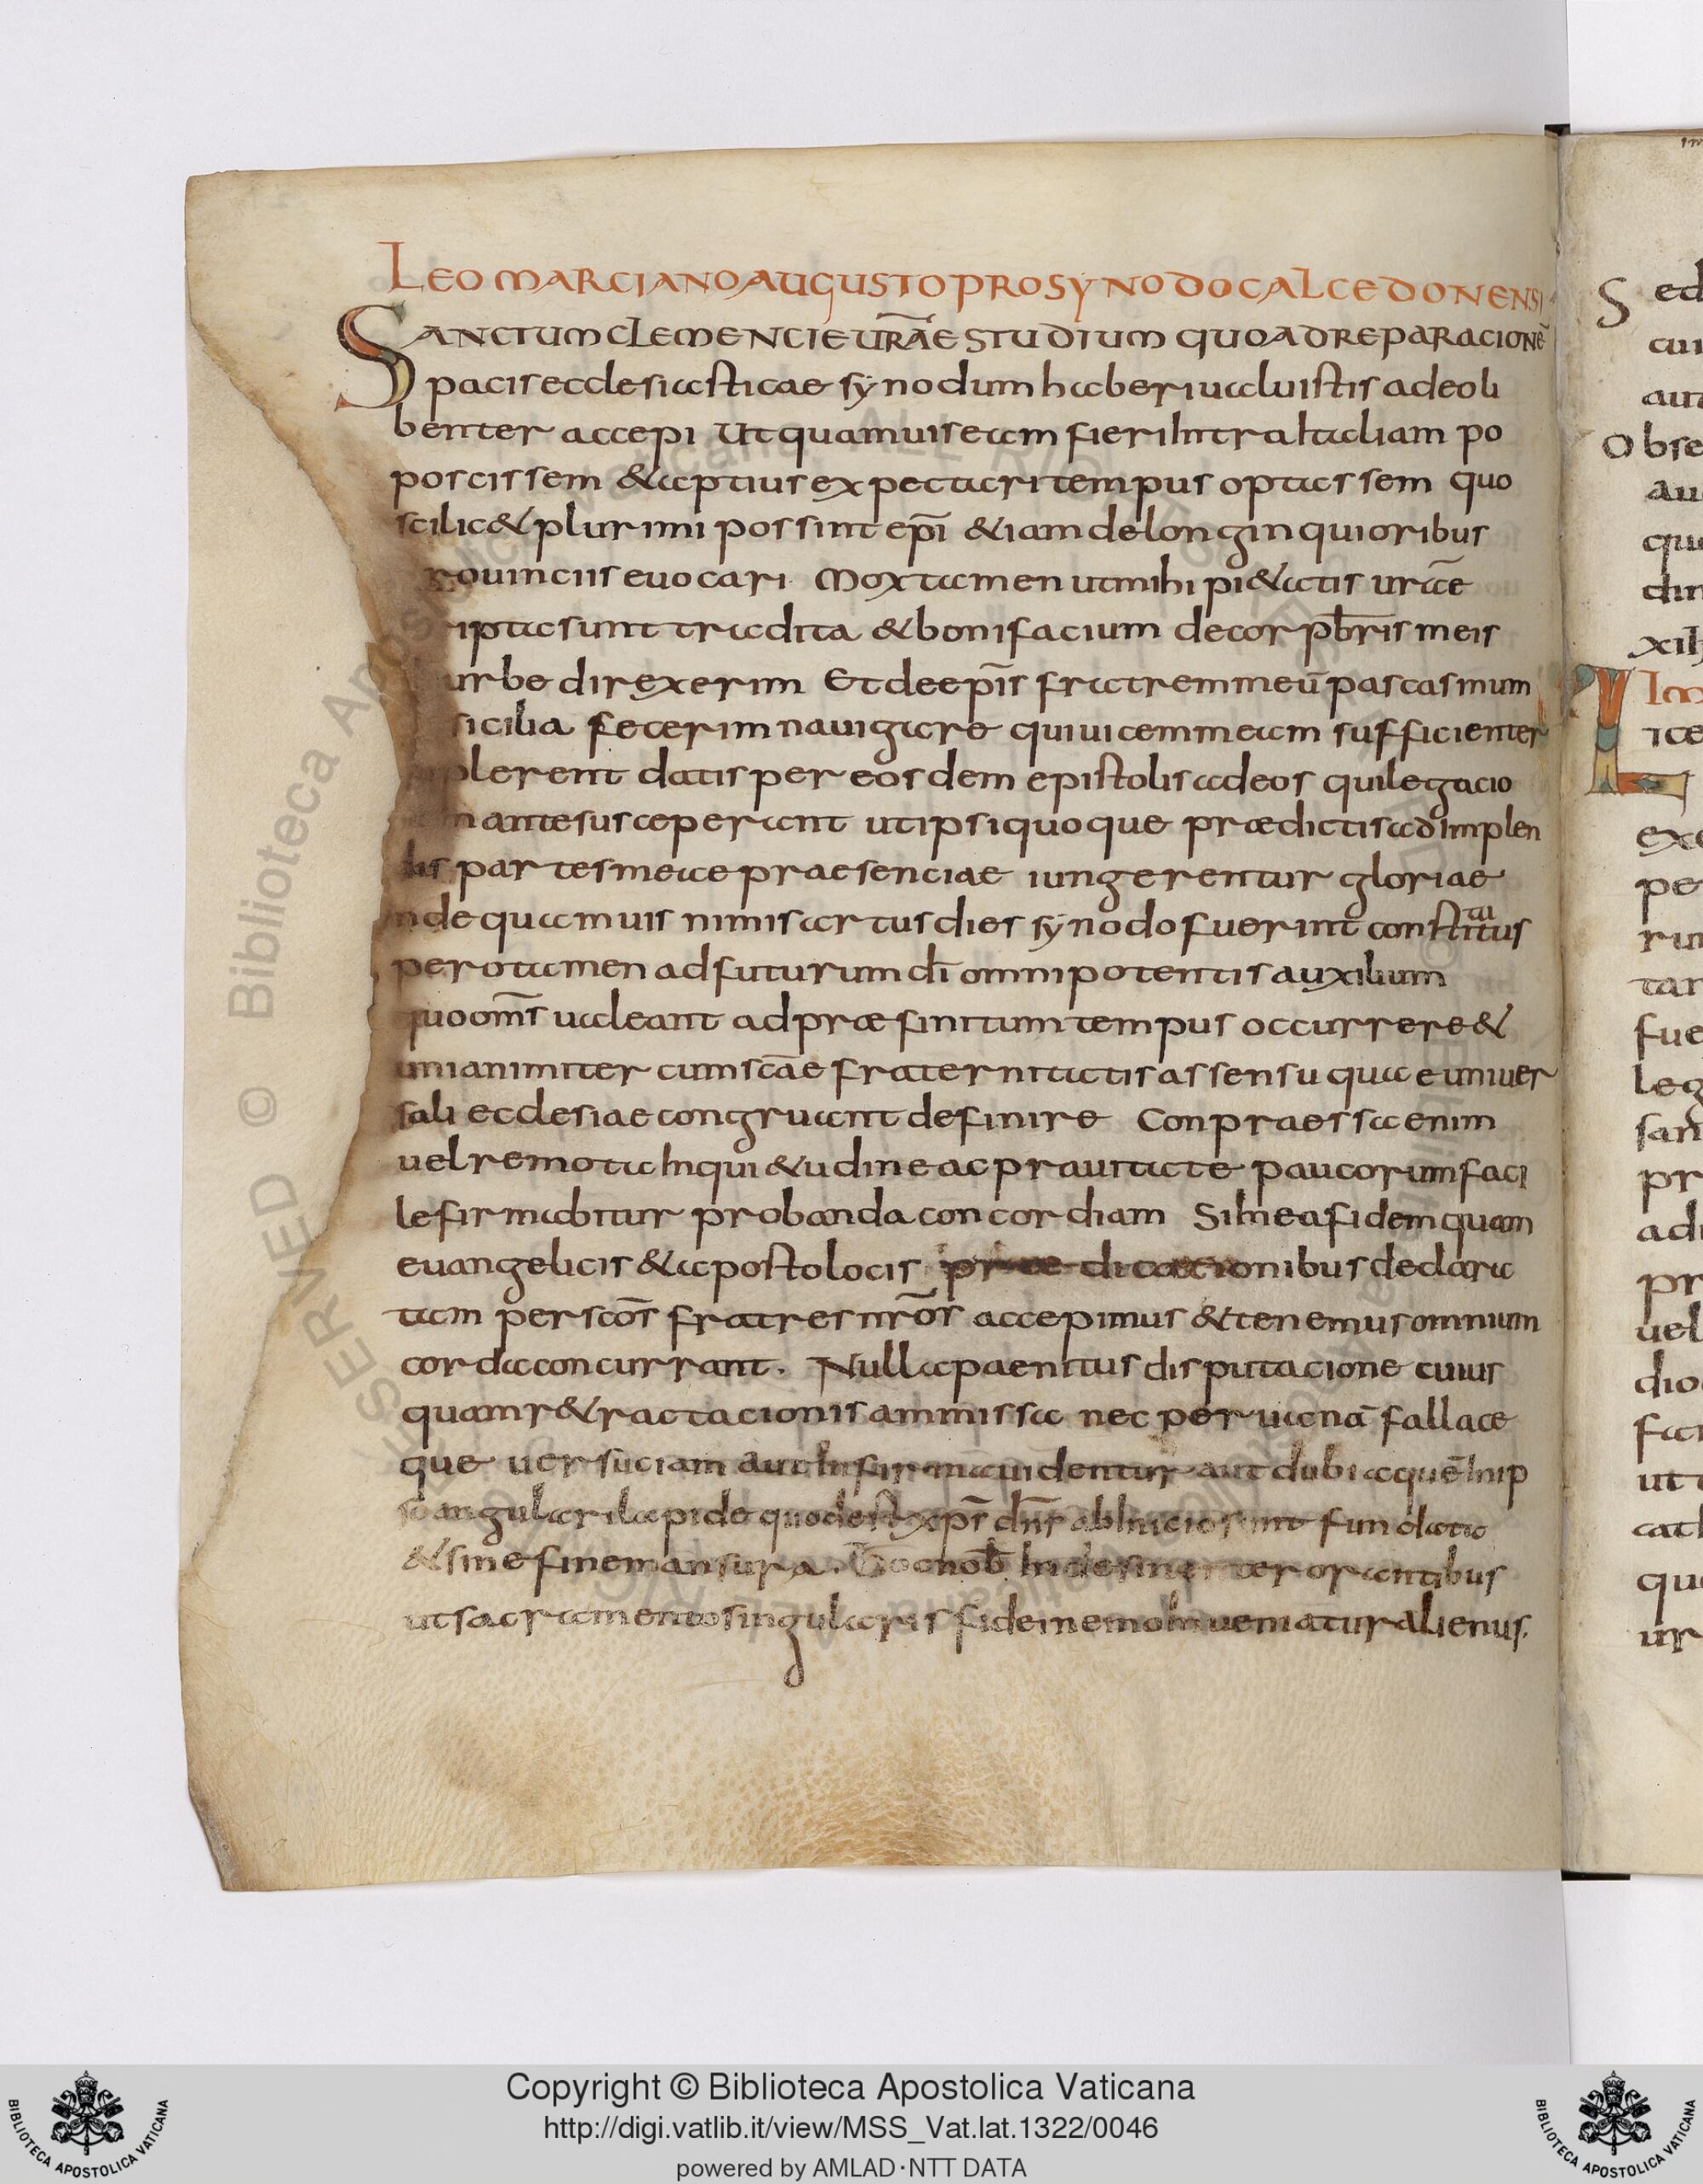 LEO MARCIANO AUGUSTO PRO SYNODO CALCEDONENSI
SANCTUM CLEMENCIE UR̄AE STUDIUM QUO AD REPARACIONĒ
pacis ecclesiasticae synodum haberi ualuistis adeo li
benter accepi Ut quamuis eam fieri intra Italiam po
poscissem & aptius expectari tempus optassem quo
scilic& plurimi possint ep̄i &iam de longinquioribus
rouinciis euocari Mox tamen ut mihi pi&atis ur̄ae
ripta sunt tradita & bonifacium de cor pb̄ris meis
urbe direxerim Et de ep̄is fratrem meū pascasinum
sicilia fecerim nauigare qui uicem meam sufficienter
plerent datis per eosdem epistolis ad eos qui legacio
m ante susceperant ut ipsi quoque prædictis ad implen
dis partes meae praesenciae iungerentur gloriae
nde quamuis nimis artus dies synodo fuerint constitutus
pero tamen ad futurum dī omnipotentis auxilium
quo om̄s ualeant ad præfinitum tempus occurrere &
unianimiter cum sc̄ae fraternitatis assensu quae uniuer
sali ecclesiae congruant definire Conpraessa enim
uel remota Inqui&udine ac prauitate paucorum faci
le firmabitur probanda concordiam Si In ea fidem quam
euangelicis & apostolocis prædicacionibus declara
tam per sc̄os fratres nr̄os accepimus & tenemus omnium
corda concurrant. Nulla paenitus disputacione cuius
quam r&ractacionis ammissa nec per uanā fallace
que uersuciam aut Infirma uidentur aut dubia quē In ip
so angulari lapide quod est xp̄s dn̄s ab Inicio sunt fundata
& sine fine mansura. Hoc nob̄ Indesinenter orantibus
ut sacramento singularis fidei nemo Inueniatur alienus.
Copyright © Biblioteca Apostolica Vaticana
http://digi.vatlib.it/view/MSS_Vat.lat.1322/0046
powered by AMLAD·NTT DATA
BIBLIOTECA APOSTOLICA VATICANA
BIBLIOTECA APOSTOLICA VATICANA